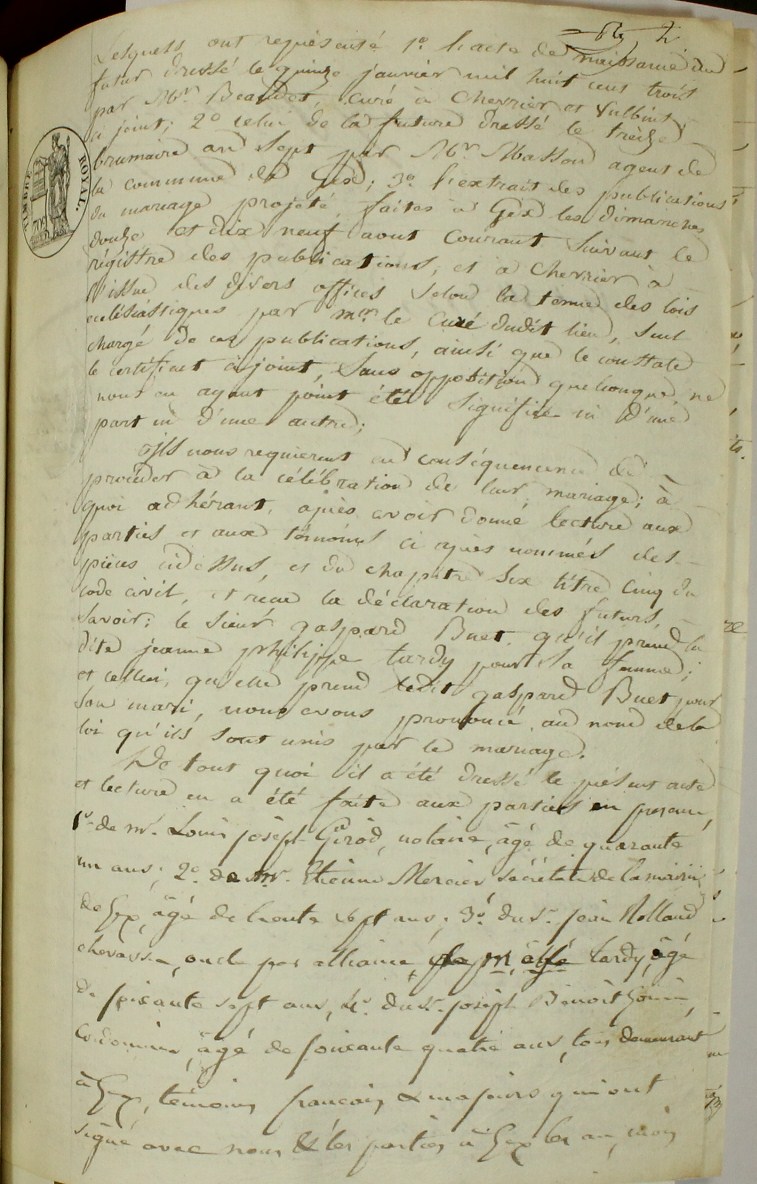 Lesquels ont représenté 1º l'acte de naissance du
futur dressé le quinze janvier mil huit cent trois
par Mr. Beaudet, curé à Chevrier et Vulbin,
ci joint; 2º celui de la future dressé le treize
brumaire an sept par Mr Masson agent de
la commune de Gex; 3º l'extrait des publications
du mariage projeté, faites à Gex les dimanches
douze et dix neuf aout courant suivant le
régistre des publications, et à Chevrier à
l'issue des divers offices selon la tenue des lois
ecclésiastiques par mr le Curé dudit lieu, seul
chargé de ces publications, ainsi que le constate
le certificat cijoint, sans opposition quelconque, ne
nous en ayant point été signifiée ni d'une
part ni d'une autre;
Ils nous requierent en conséquence de
procéder à la célébration de leur mariage; à
quoi adhérant, après avoir donné lecture aux
parties et aux témoins ci après nommés des
pièces cidessus, et du chapitre six titre cinq du
code civil, et recu la déclaration des futurs,
Savoir: le sieur gaspard Buet, qu'il prend la
dite jeanne philippe tardy pour sa femme;
et celleci, qu'elle prend ledit gaspard Buet pour
son mari, nous avons prononcé au nom de la
loi qu'ils sont unis par le mariage.
De tout quoi il a été dressé le présent acte
et lecture en a été faite aux parties en presence,
1º. de mr. Louis joseph Girod, notaire, âgé de quarante
un ans; 2º. de mr. Etienne Mercier, secrétaire de la mairie
de Gex, âgé de trente sept ans; 3º. du sr. jean Rolland
chevassu, oncle par alliance, tardy, âgé
de soixante sept ans, 4º. du sr. joseph Benoit
cordonnier, âgé de soixante quatre ans, tous demeurant
à Gex, témoins francais & majeurs qui ont
signé avec nous & les parties à Gex les an, mois
TIMBRE ROYAL.